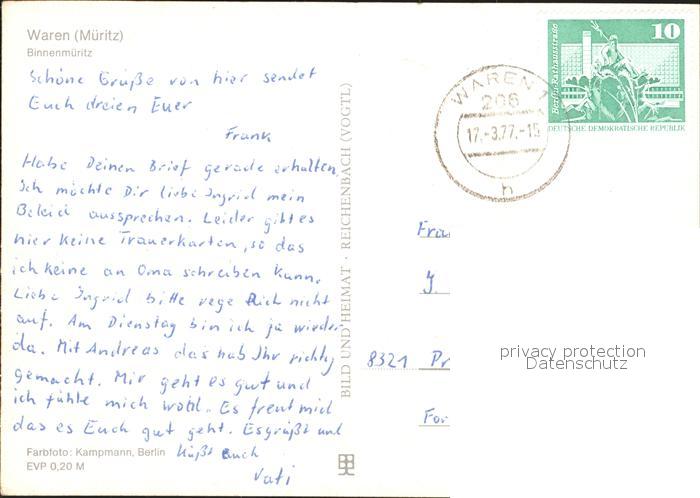 Waren (Müritz)
Binnenmüritz
Schöne Grüße von hier sendet
Euch dreien Euer
Frank
Habe Deinen Brief gerade erhalten,
Ich möchte Dir liebe Ingrid mein
Beleid aussprechen. Leider gibt es
hier keine Trauerkarten, so das
ich keine an Oma schreiben kann.
Liebe Ingrid bitte rege Dich nicht
auf. Am Dienstag bin ich ja wieder
da. Mit Andreas das hab Ihr richtig
gemacht. Mir geht es gut und
ich fühle mich wohl. Es freut mich
das es Euch gut geht. Es grüßt und
küßt Euch
Vati
Farbfoto: Kampmann, Berlin
EVP 0,20 M
BILD UND HEIMAT · REICHENBACH (VOGTL)
WAREN 1
206
17.-3.77.-15
h
10
Berlin, Rathausstraße
DEUTSCHE DEMOKRATISCHE REPUBLIK
Fra
J.
8321 Pr
For
privacy protection
Datenschutz